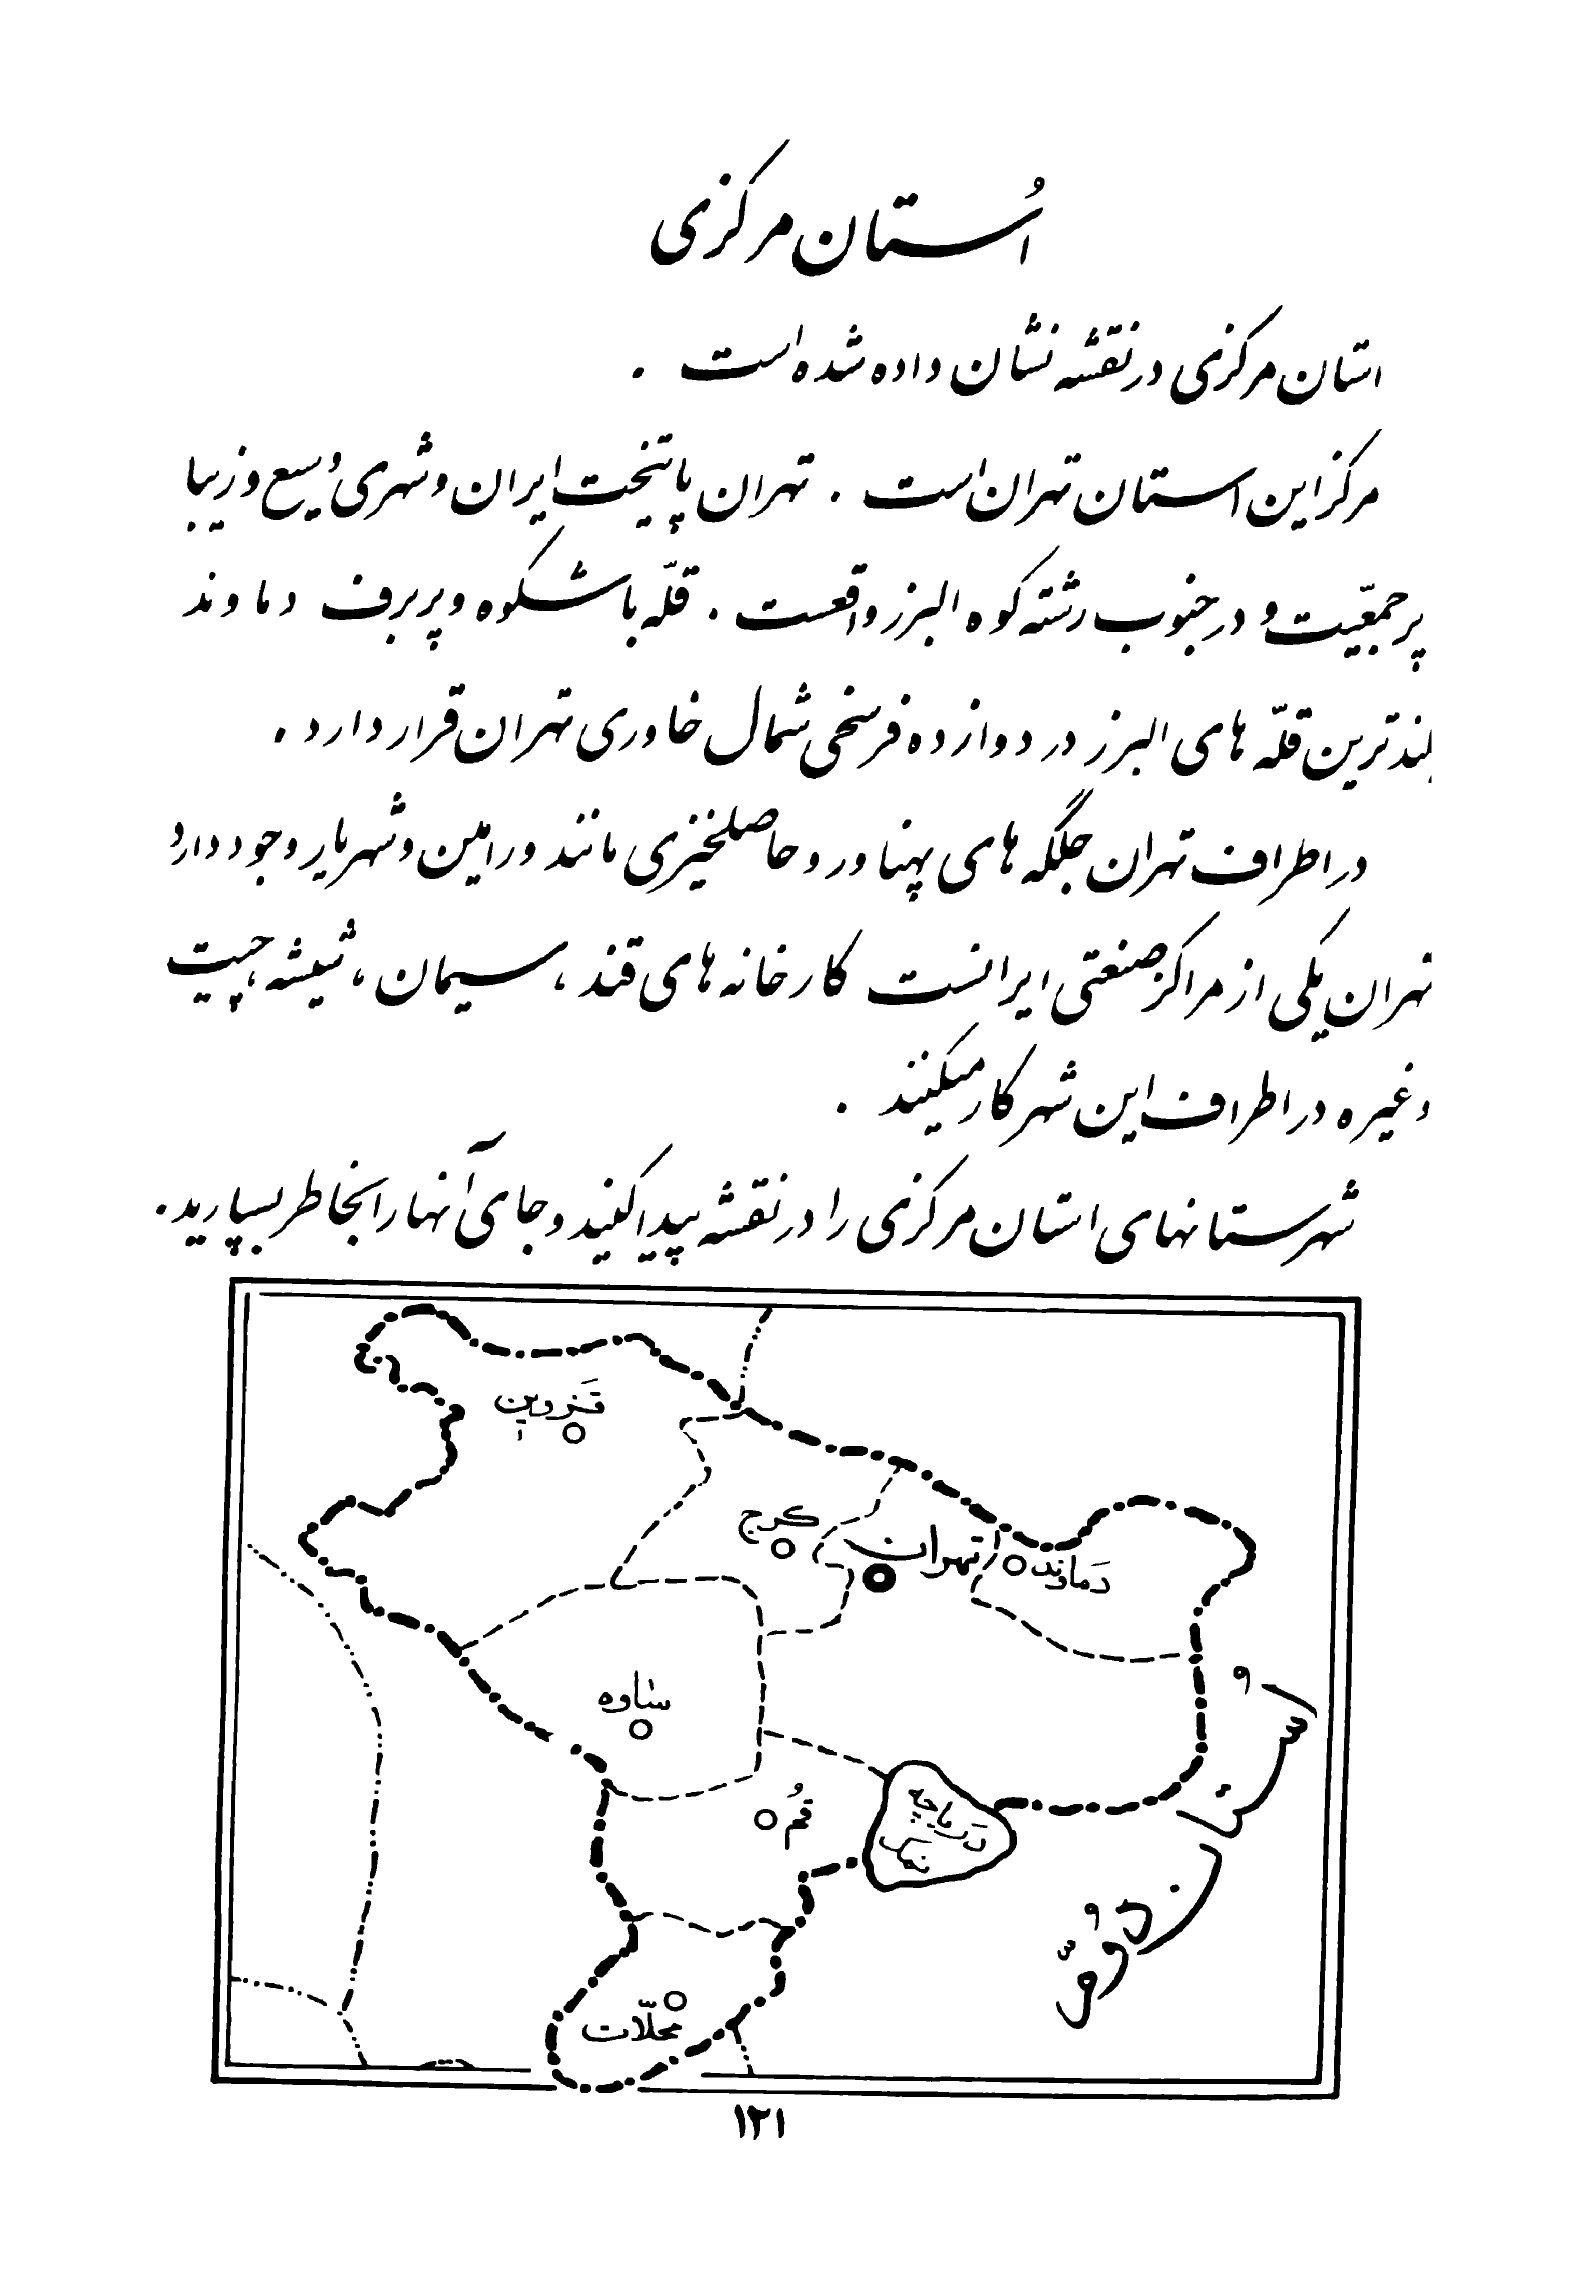 اُستان مرکزی
استان مرکزی در نقشه نشان داده شده است .
مرکز این استان تهران است . تهران پایتخت ایران و شهری وسیع و زیبا
پر جمعّیت و در جنوب رشته کوه البرز واقعست . قلّه با شکوه و پر برف دماوند
بلند ترین قلّه های البرز در دوازده فرسخی شمال خاوری تهران قرار دارد .
در اطراف تهران جلگه های پهناور و حاصلخیزی مانند ورامین و شهریار وجود دارد
تهران یکی از مراکز صنعتی ایرانست کارخانه های قند ، سیمان ، شیشه ، چیت
و غیره در اطراف این شهر کار میکنند .
شهرستانهای استان مرکزی را در نقشه پیدا کنید و جای آنها را بخاطر بسپارید .
قَزوین
کرج
تهران
دَماوند
ساوه
قُم
دَریاچه
نمک
محلّات
اُستان دُوّم
۱۲۱